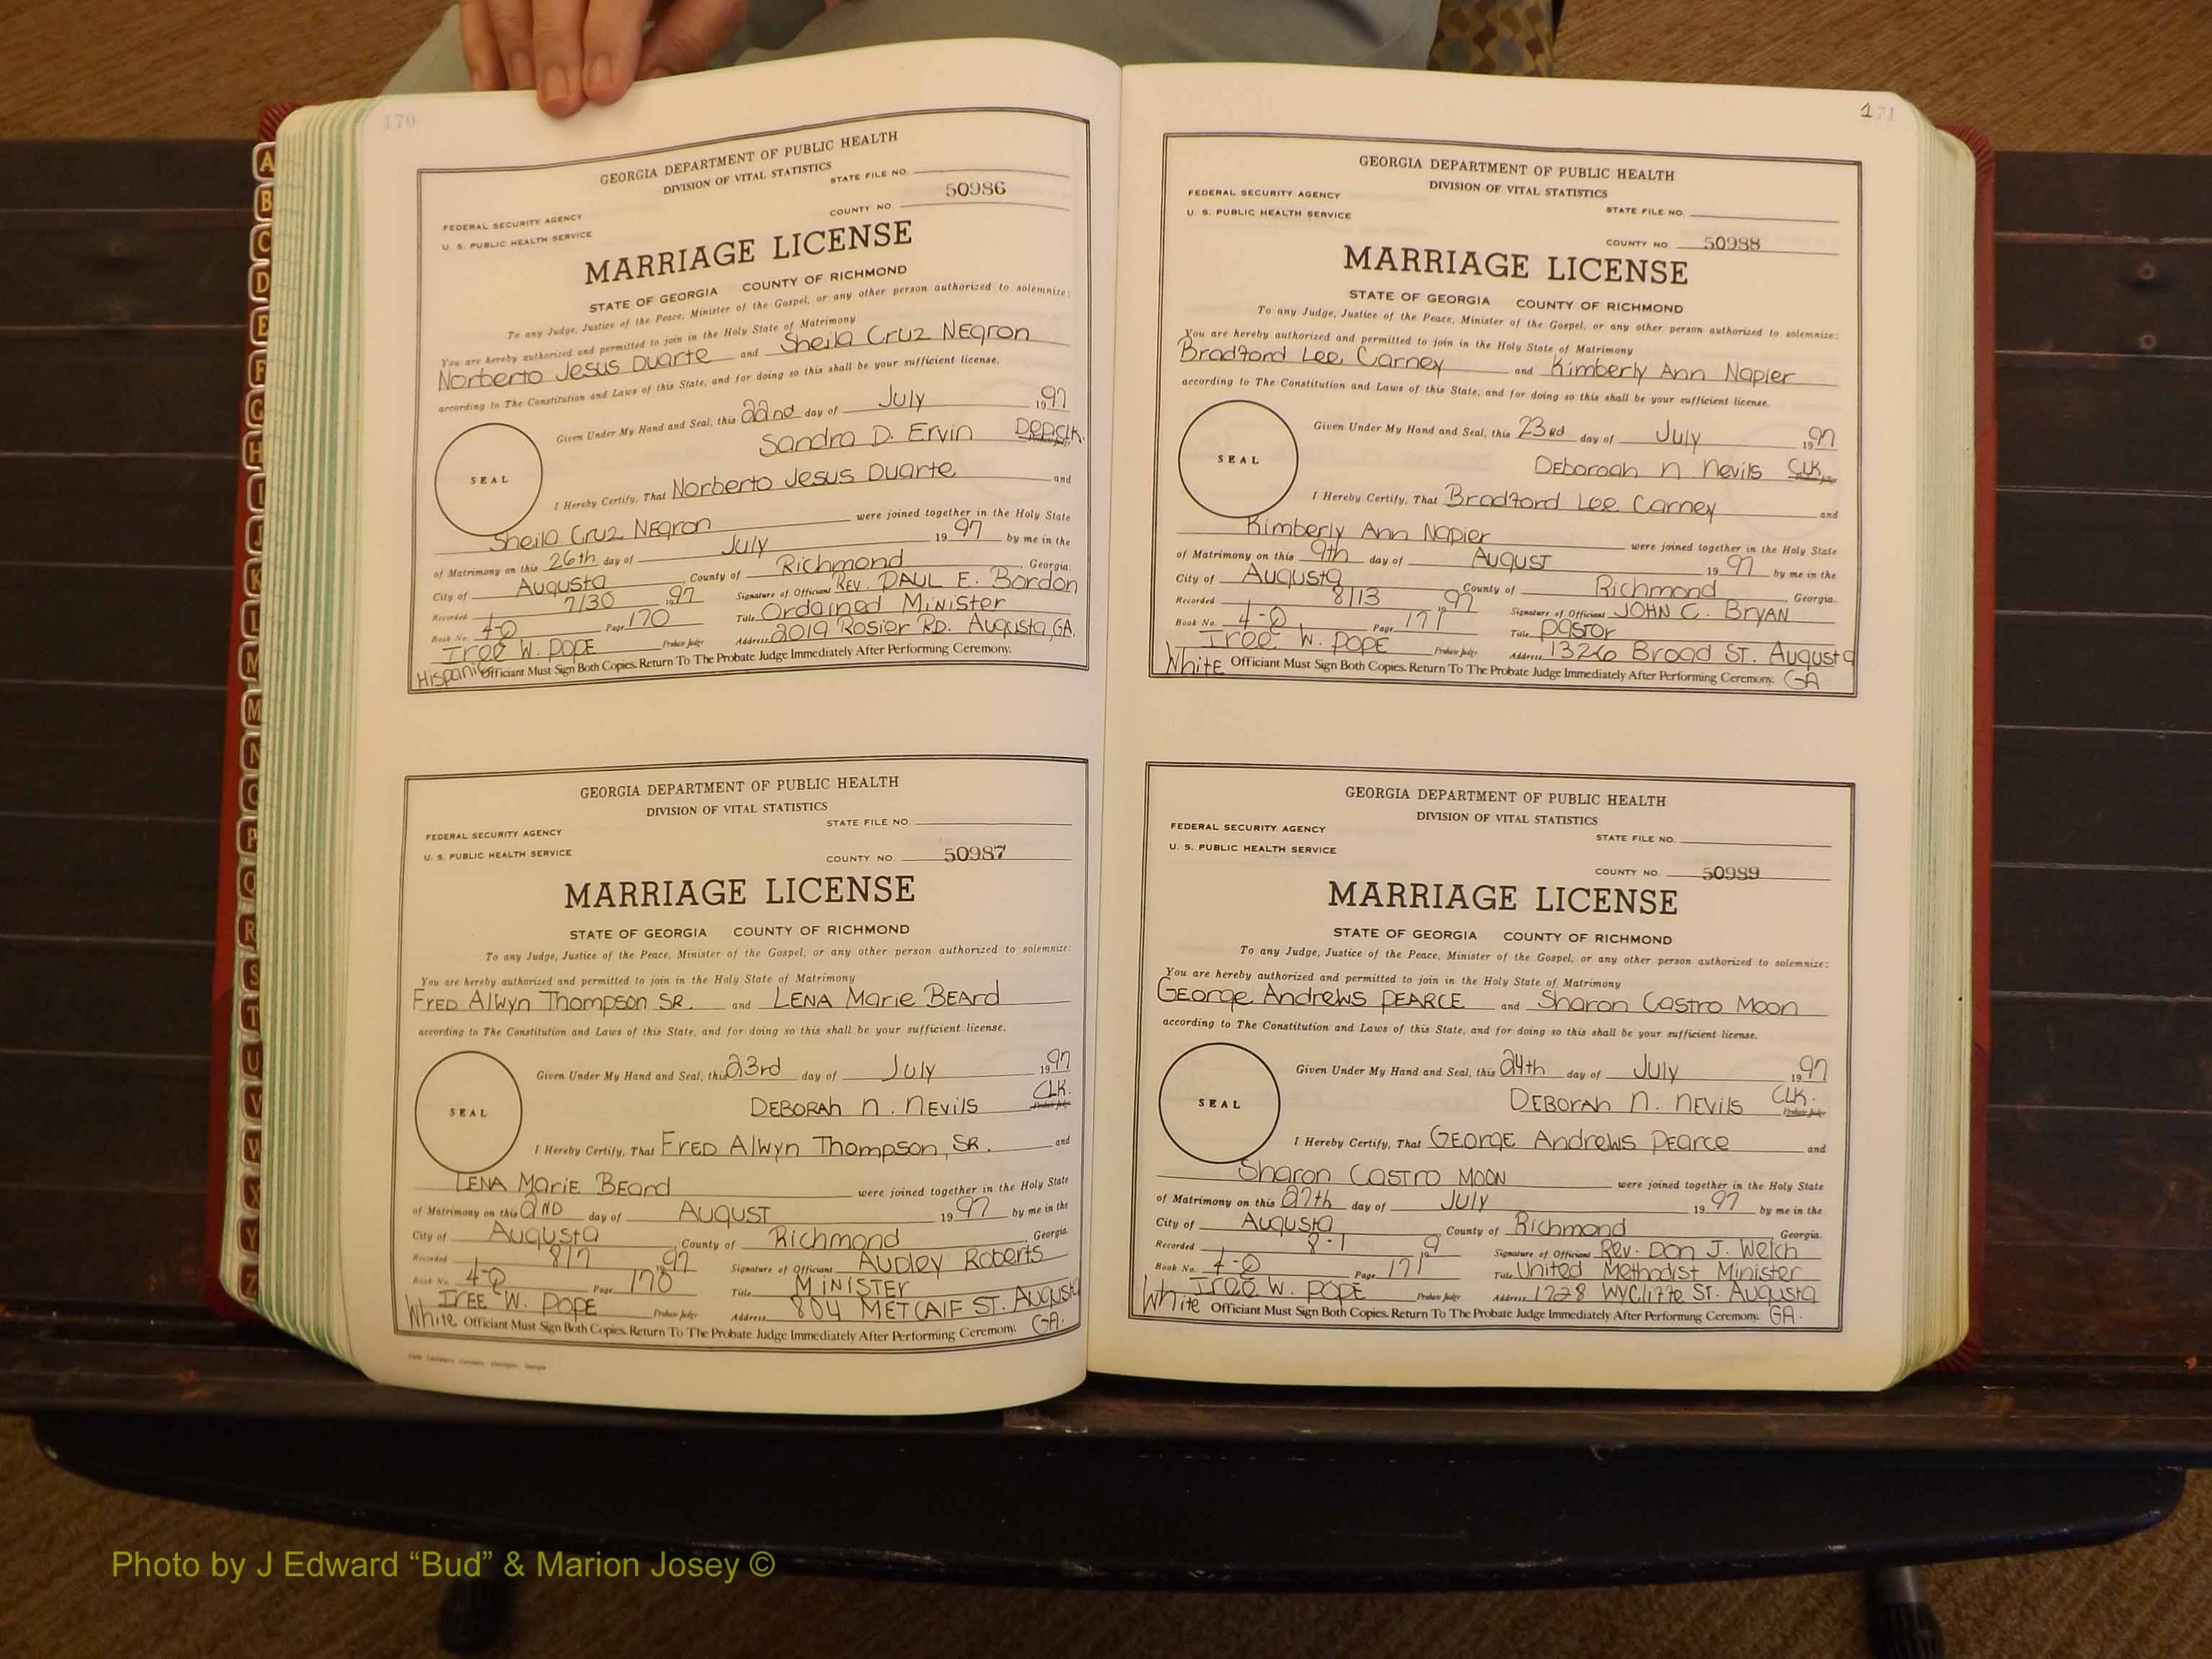 170
GEORGIA DEPARTMENT OF PUBLIC HEALTH
DIVISION OF VITAL STATISTICS
STATE FILE NO.
FEDERAL SECURITY AGENCY
U. S. PUBLIC HEALTH SERVICE
COUNTY NO. 50986
MARRIAGE LICENSE
STATE OF GEORGIA COUNTY OF RICHMOND
To any Judge, Justice of the Peace, Minister of the Gospel, or any other person authorized to solemnize:
You are hereby authorized and permitted to join in the Holy State of Matrimony
Norberto Jesus Duarte and Sheila Cruz Negron
according to The Constitution and Laws of this State, and for doing so this shall be your sufficient license.
Given Under My Hand and Seal, this 22nd day of July 1997
Sandra D. Ervin Dep.Clk.
SEAL
I Hereby Certify, That Norberto Jesus Duarte and
Sheila Cruz Negron were joined together in the Holy State
of Matrimony on this 26th day of July 1997 by me in the
City of Augusta, County of Richmond, Georgia.
Recorded 7/30 1997 Signature of Officiant Rev. PAUL E. Bordon
Book No. 4-Q Page 170 Title Ordained Minister
Iree W. POPE Probate Judge Address 2019 Rosier Rd. Augusta, GA.
Hispanic Officiant Must Sign Both Copies. Return To The Probate Judge Immediately After Performing Ceremony.
GEORGIA DEPARTMENT OF PUBLIC HEALTH
DIVISION OF VITAL STATISTICS
STATE FILE NO.
FEDERAL SECURITY AGENCY
U. S. PUBLIC HEALTH SERVICE
COUNTY NO. 50987
MARRIAGE LICENSE
STATE OF GEORGIA COUNTY OF RICHMOND
To any Judge, Justice of the Peace, Minister of the Gospel, or any other person authorized to solemnize:
You are hereby authorized and permitted to join in the Holy State of Matrimony
FRED Alwyn Thompson SR. and LENA Marie BEARD
according to The Constitution and Laws of this State, and for doing so this shall be your sufficient license.
Given Under My Hand and Seal, this 23rd day of July 1997
DEBORAH N. NEVILS CLK.
Probate Judge
SEAL
I Hereby Certify, That FRED Alwyn Thompson, SR. and
LENA MARIE BEARD were joined together in the Holy State
of Matrimony on this 2ND day of AUGUST 1997 by me in the
City of Augusta, County of Richmond, Georgia.
Recorded 8/7 1997 Signature of Officiant AUDLEY Roberts
Book No. 4-Q Page 170 Title MINISTER
IREE W. POPE Probate Judge Address 804 METCALF ST. Augusta
White Officiant Must Sign Both Copies. Return To The Probate Judge Immediately After Performing Ceremony. GA.
171
GEORGIA DEPARTMENT OF PUBLIC HEALTH
DIVISION OF VITAL STATISTICS
FEDERAL SECURITY AGENCY
U. S. PUBLIC HEALTH SERVICE
STATE FILE NO.
COUNTY NO. 50988
MARRIAGE LICENSE
STATE OF GEORGIA COUNTY OF RICHMOND
To any Judge, Justice of the Peace, Minister of the Gospel, or any other person authorized to solemnize:
You are hereby authorized and permitted to join in the Holy State of Matrimony
Bradford Lee Carney and Kimberly Ann Napier
according to The Constitution and Laws of this State, and for doing so this shall be your sufficient license.
Given Under My Hand and Seal, this 23rd day of July 1997
Deboroah N Nevils CLK
Probate Judge
SEAL
I Hereby Certify, That Bradford Lee Carney and
Kimberly Ann Napier were joined together in the Holy State
of Matrimony on this 9th day of AUGUST 1997 by me in the
City of Augusta County of Richmond, Georgia.
Recorded 8/13 1997 Signature of Officiant JOHN C. BRYAN
Book No. 4-Q Page 171 Title Pastor
Iree W. POPE Probate Judge Address 1326 Broad ST. Augusta
White Officiant Must Sign Both Copies. Return To The Probate Judge Immediately After Performing Ceremony. GA
GEORGIA DEPARTMENT OF PUBLIC HEALTH
DIVISION OF VITAL STATISTICS
FEDERAL SECURITY AGENCY
U. S. PUBLIC HEALTH SERVICE
STATE FILE NO.
COUNTY NO. 50989
MARRIAGE LICENSE
STATE OF GEORGIA COUNTY OF RICHMOND
To any Judge, Justice of the Peace, Minister of the Gospel, or any other person authorized to solemnize:
You are hereby authorized and permitted to join in the Holy State of Matrimony
George Andrews PEARCE and Sharon Castro Moon
according to The Constitution and Laws of this State, and for doing so this shall be your sufficient license.
Given Under My Hand and Seal, this 24th day of July 1997
DEBORAH N. NEVILS CLK.
Probate Judge
SEAL
I Hereby Certify, That GEORGE Andrews Pearce and
Sharon Castro MOON were joined together in the Holy State
of Matrimony on this 27th day of July 1997 by me in the
City of Augusta, County of Richmond Georgia.
Recorded 8-1 199 Signature of Officiant Rev. Don J. Welch
Book No. 4-Q Page 171 Title United Methodist Minister
Iree W. POPE Probate Judge Address 1728 Wycliffe ST. Augusta
White Officiant Must Sign Both Copies. Return To The Probate Judge Immediately After Performing Ceremony. GA.
A
B
C
D
E
F
G
H
I
J
K
L
M
M
N
O
P
Q
R
S
T
U
V
W
X
Y
Z
Photo by J Edward “Bud” & Marion Josey ©